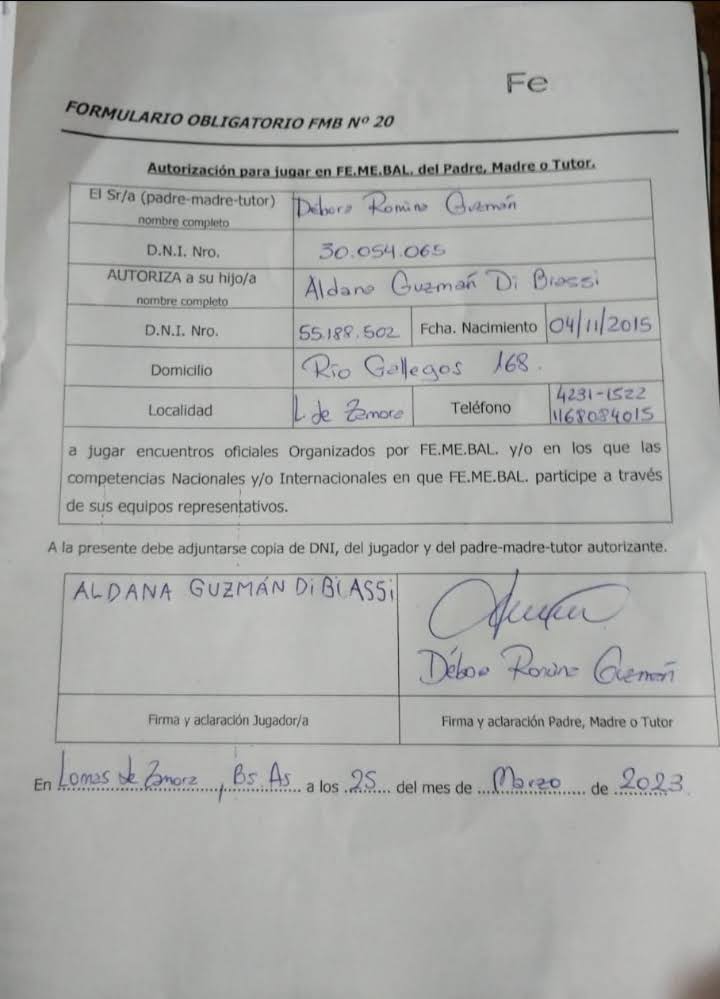 Fe
FORMULARIO OBLIGATORIO FMB Nº 20
Autorización para jugar en FE.ME.BAL. del Padre, Madre o Tutor.
El Sr/a (padre-madre-tutor) Débora Romina Guzmán
nombre completo
D.N.I. Nro. 30.054.065
AUTORIZA a su hijo/a Aldana Guzmán Di Biassi
nombre completo
D.N.I. Nro. 55.188.502 Fcha. Nacimiento 04/11/2015
Domicilio Río Gallegos 168.
Localidad L. de Zamora Teléfono 4231-1522
1168084015
a jugar encuentros oficiales Organizados por FE.ME.BAL. y/o en los que las
competencias Nacionales y/o Internacionales en que FE.ME.BAL. participe a través
de sus equipos representativos.
A la presente debe adjuntarse copia de DNI, del jugador y del padre-madre-tutor autorizante.
ALDANA GUZMÁN Di BiASSi
Débora Romina Guzmán
Firma y aclaración Jugador/a Firma y aclaración Padre, Madre o Tutor
En Lomas de Zamora, Bs. As. a los 25 del mes de Marzo de 2023